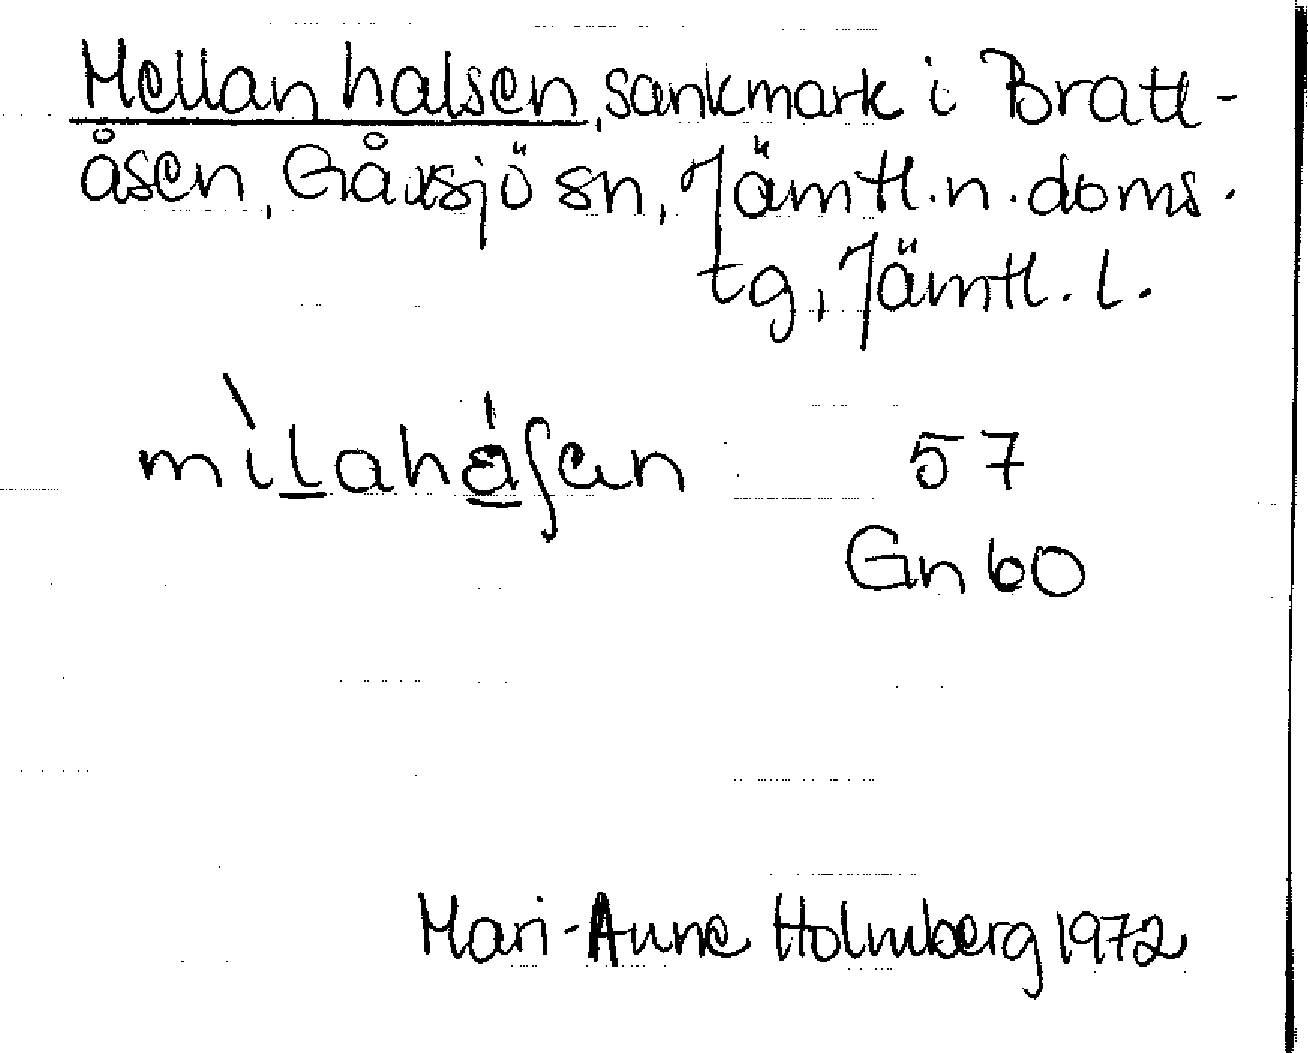 Mellanhalsen, sankmark i Bratt-
åsen, Gåxsjö sn, Jämtl. n. doms.
tg, Jämtl. l.
57
Gn 60
Mari-Anne Holmberg 1972